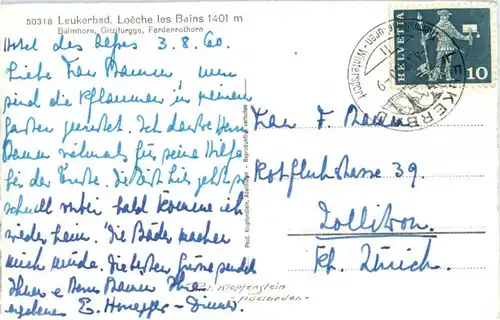 50318 Leukerbad, Loèche les Bains 1401 m
Balmhorn, Gitzifurgge, Ferdenrothorn
Hotel des Alpes 3.8.60
Liebe Frau Baumer, nun
sind die Pflaumen in meinem
Garten gerüstet. Ich danke Herrn
Baumer vielmals für seine Hilfe
bei der Ernte. Die Zeit hier geht so
schnell vorbei bald komme ich
wieder heim. Die Bäder machen
mich müde. Die besten Grüsse sendet
Ihnen e Herrn Baumer Ihre
ergebene E. Honegger-
HELVETIA
10
LEUKERBAD
Frau F. Baumer
Rotfluhstrasse 39.
Zollikon.
Kt. Zürich.
Phot. Klopfenstein, Adelboden - Reproduktion verboten
Klopfenstein
Adelboden